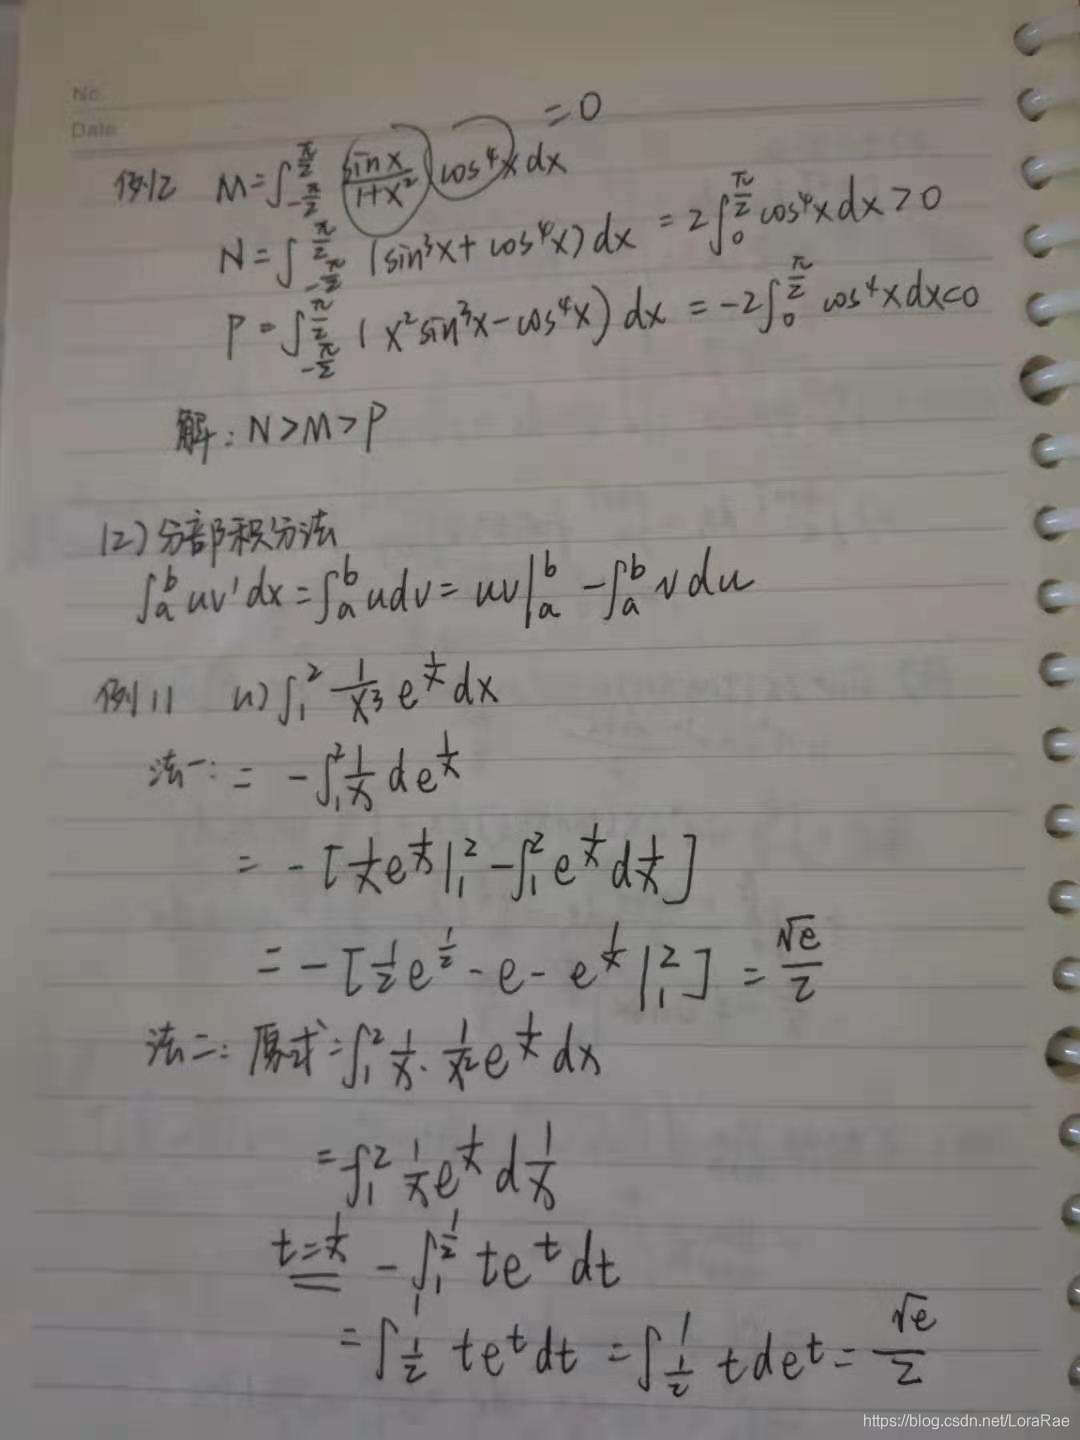 No.
Date
= 0
例12 M=∫_{-π/2}^{π/2} (sinx/(1+x²)) cos⁴x dx
N=∫_{-π/2}^{π/2} (sin³x+cos⁴x)dx = 2∫_0^{π/2} cos⁴xdx>0
P=∫_{-π/2}^{π/2} (x²sin³x-cos⁴x)dx = -2∫_0^{π/2} cos⁴xdx<0
解: N>M>P
(2)分部积分法
∫_a^b uv'dx=∫_a^b udv=uv|_a^b -∫_a^b vdu
例11 (1)∫_1^2 (1/x³)e^{1/x}dx
法一: = -∫_1^2 (1/x)de^{1/x}
= -[(1/x)e^{1/x}|_1^2-∫_1^2 e^{1/x}d(1/x)]
= -[(1/2)e^{1/2}-e-e^{1/x}|_1^2] = √e/2
法二: 原式=∫_1^2 (1/x)·(1/x²)e^{1/x}dx
=∫_1^2 (1/x)e^{1/x}d(1/x)
t=1/x -∫_1^{1/2} te^t dt
=∫_{1/2}^1 te^t dt =∫_{1/2}^1 tde^t= √e/2
https://blog.csdn.net/LoraRae